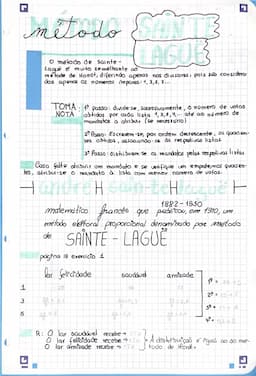 método SAINTE
LAGUË
O método de Sainte-
Laguë é muito semelhante ao
método de Hondt, diferindo apenas nos divisores, pois são considera
dos apenas os números ímpares: 1, 3, 5, ...
TOMA NOTA
1º Passo: divide-se, sucessivamente, o número de votos
obtidos por cada lista 1, 3, 5, 7, ... até ao número de
mandatos a atribuir (se necessário)
2º Passo: Escrevem-se, por ordem decrescente, os quocien-
tes obtidos, associando-os às respetivas listas.
3º Passo: distribuem-se os mandatos pelas respetivas listas
Caso falte atribuir um mandato e se verifique um empate nos quocien-
tes, atribui-se o mandato à lista com menor número de votos.
andré sainte laguë
1882 - 1950
matemático francês que publicou, em 1910, um
método eleitoral proporcional denominado por método
de SAINTE-LAGUË
página 18 exercício 1
lar felicidade saudável amizade
1
3
5
1º
2º
3º
4º
R: O lar saudável recebe
O lar felicidade recebe
O lar amizade recebe
A distribuição é igual ao do mé-
todo de Hondt.